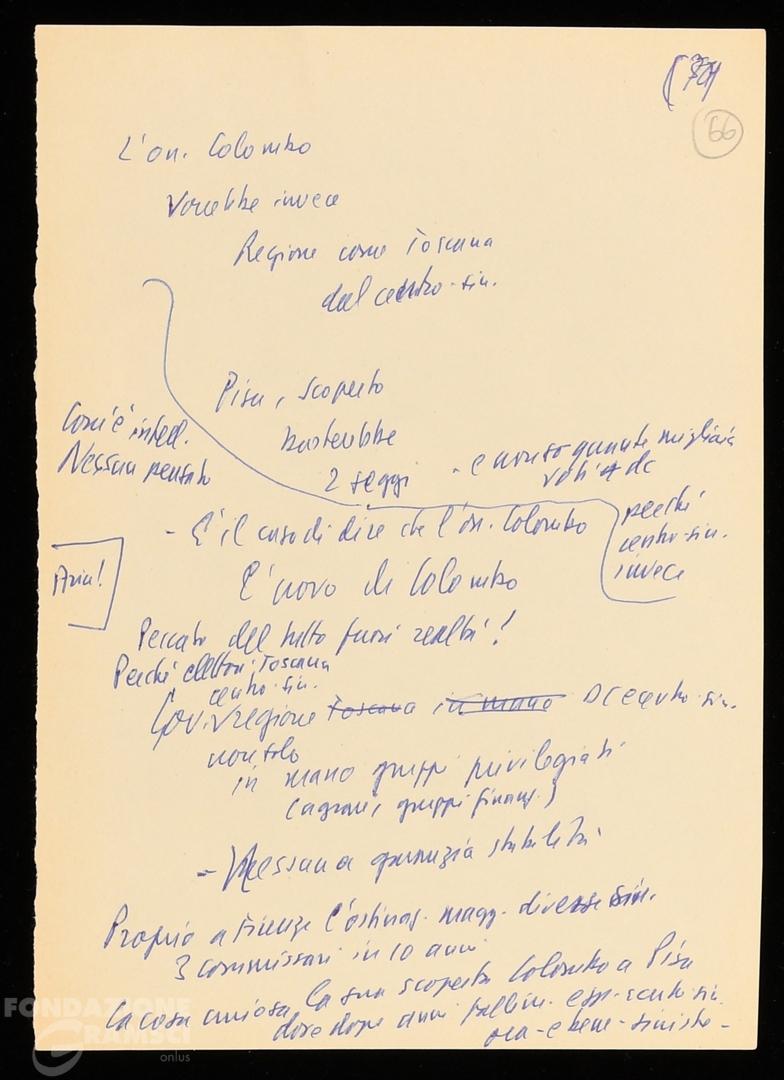 66
L'on. Colombo
Vorrebbe invece
Regione come Toscana
dal centro-sin.
Pisa, scoperto
basterebbe
2 seggi - e non so quante migliaia
voti DC
Com'è intell.
Nessun pensato
- E' il caso di dire che l'on. Colombo
perché
centro-sin.
invece
L'uovo di Colombo
Peccato del tutto fuori realtà!
Perché elettori Toscana
centro-sin.
regione Toscana in mano DC centro-sin.
non solo
in mano gruppi privilegiati
(agrari, gruppi finanz.)
- Nessuna garanzia stabilità
Proprio a Firenze l'ostinaz. magg. diverse sin.
3 commissari in 10 anni
La cosa curiosa, la sua scoperta Colombo a Pisa
dove dopo anni fallim. esp. centro-sin.
ora - e bene - sinistre -
FONDAZIONE
GRAMSCI
onlus